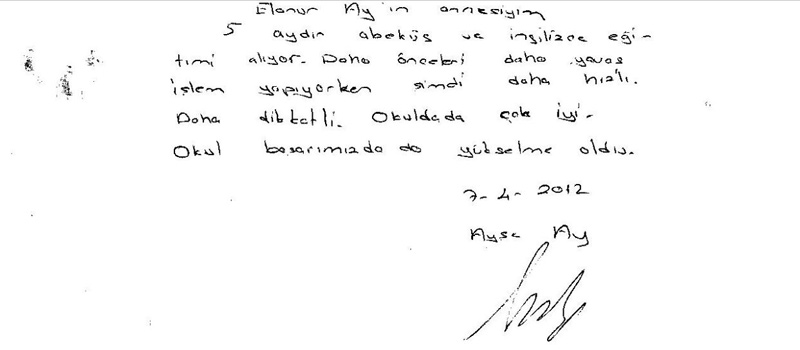 Elanur Ay'ın annesiyim
5 aydır abeküs ve ingilizce eği-
timi alıyor. Daha önceleri daha yavaş
işlem yapıyorken şimdi daha hızlı.
Daha dikkatli. Okuldada çok iyi.
Okul başarımızda da yükselme oldu.
7-4-2012
Ayşe Ay